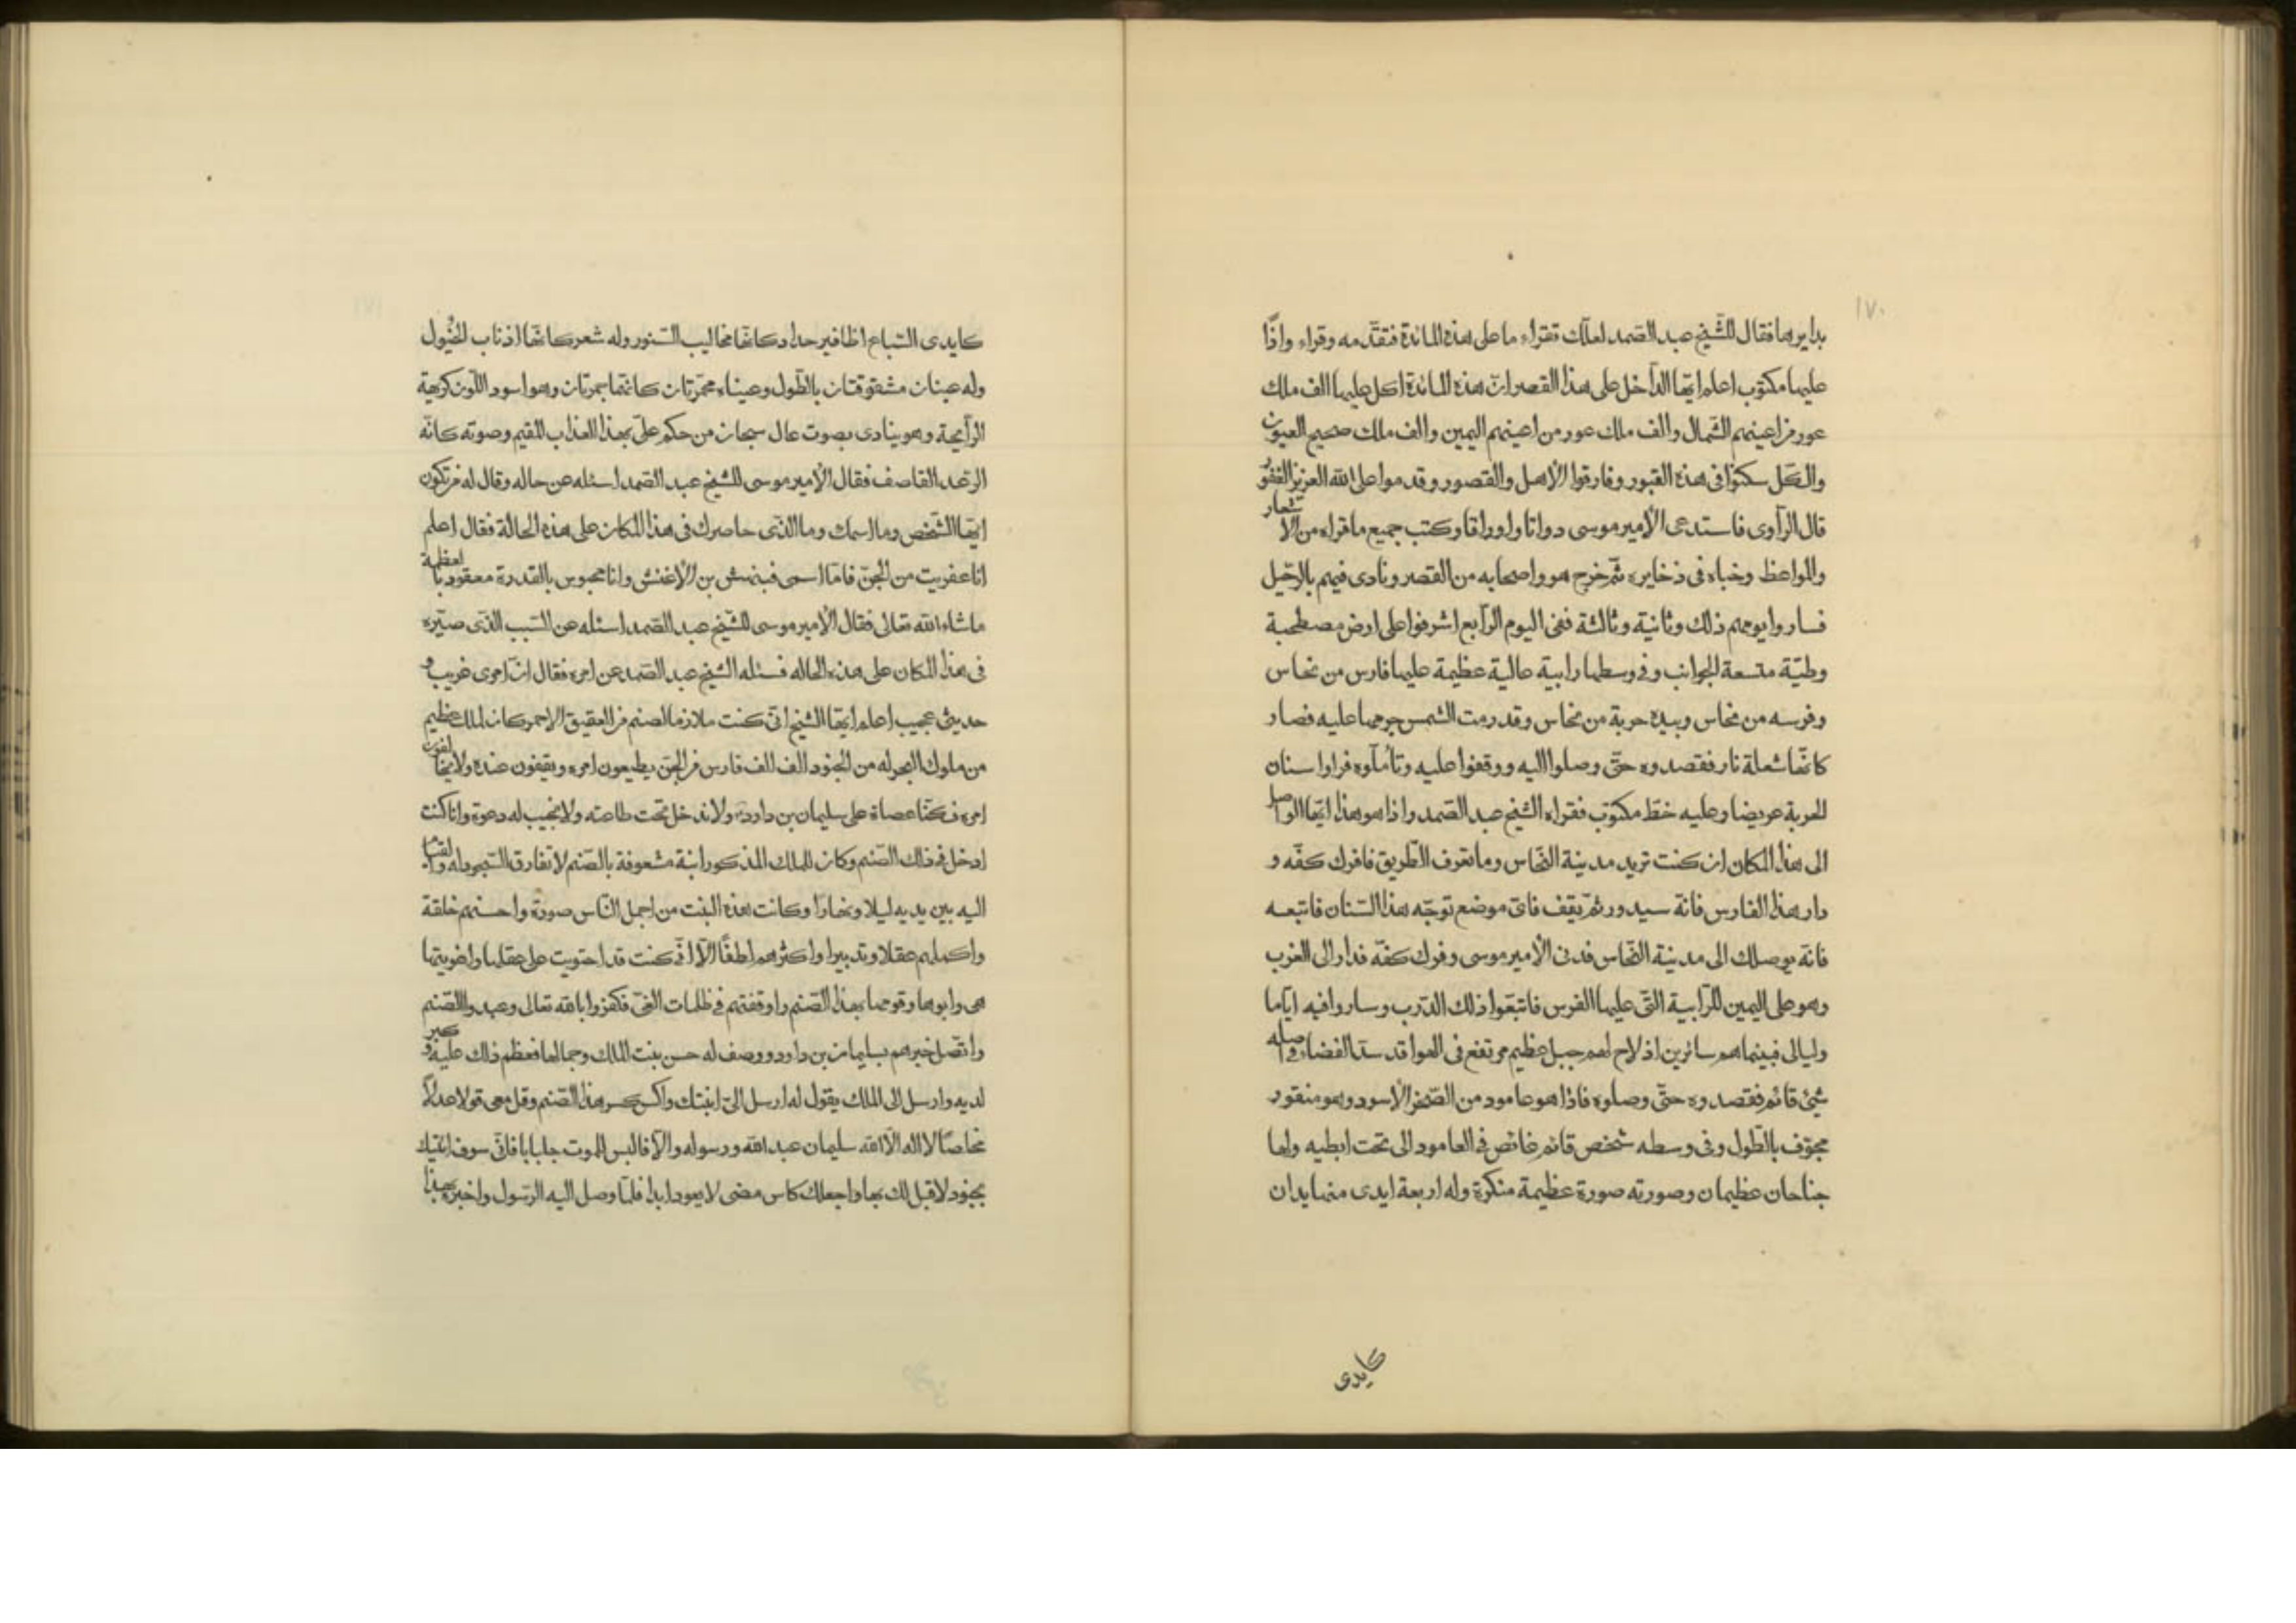 ١٧٠
بدايرها فقال للشّيخ عبد الصّمد لعلّك تقراء ما على هذه المائدة فتقدّمه وقراء واذّا
عليها مكتوب اعلم ايّها الدّاخل على هذا القصر انّ هذه المائدة اكل عليها الف ملك
عور من اعينهم الشّمال والف ملك عور من اعينهم اليمين والف ملك صحيح العيون
والكّل سكنوا فى هذه القبور وفارقوا الأهل والقصور وقدموا على الله العزيز الغفور
قال الرّاوى فاستدعى الأمير موسى دواتا واوراقا وكتب جميع ما قراه من الاشعار
والمواعظ وخباه فى ذخايره ثمّ خرج هو واصحابه من القصر ونادى فيهم بالرّحيل
فساروا يومهم ذلك وثانية وثالثة ففى اليوم الرّابع اشرفوا على ارض مصطحبة
وطيّة متسعة الجوانب وفى وسطها رابية عالية عظيمة عليها فارس من نحاس
وفرسه من نحاس وبيده حربة من نحاس وقد رمت الشّمس جرمها عليه فصار
كانّها شعلة نار فقصدوه حتّى وصلوا اليه ووقفوا عليه وتأملّوه فراوا سنان
الحربة عريضا وعليه خطّ مكتوب فقراه الشّيخ عبد الصّمد واذا هو هذا ايّها الواصل
الى هذا المكان ان كنت تريد مدينة النّحاس وما تعرف الطّريق فافرك كفّه و
دار هذا الفارس فانّة سيدور ثمّ يقف فاىّ موضع توجّه هذا السّنان فاتبعه
فانّه يوصلك الى مدينة النّحاس فدنى الأمير موسى وفرك كفّه فدار الى الغرب
وهو على اليمين للرّابية التّى عليها الفرس فاتبعوا ذلك الدّرب وساروا فيه ايّاما
وليالى فبينما هم سائرين اذ لاح لهم جبل عظيم مرتفع فى الهوا قد سدّ الفضاء وفى اصله
شئ قائم فقصدوه حتّى وصلوه فاذا هو عامود من الصّخر الأسود وهو منقور
مجوّف بالطّول وفى وسطه شخص قائم غائص فى العامود الى تحت ابطيه ولها
جناحان عظيمان وصورته صورة عظيمة منكرة وله اربعة ايدى منها يدان
كايدى
كايدى السّباع اظافير حداد كانّها مخاليب السّنور وله شعر كانّها اذناب الخيول
وله عينان مشقوقتان بالطّول وعيناه محمّرتان كانّهما جمرتان وهو اسود اللّون كريهة
الرّايحة وهو ينادى بصوت عال سبحان من حكم علىّ بهذا العذاب المقيم وصوته كانّه
الرّعد القاصف فقال الأمير موسى للشّيخ عبد الصّمد اسئله عن حاله وقال له من تكون
ايّها الشّخص وما اسمك وما الذّى حاصرك فى هذا المكان على هذه الحالة فقال اعلم
انا عفريت من الجنّ فامّا اسمى فبنهش بن الأغنش وانا محبوس بالقدرة معقود بالعظمة
ما شاء الله تعالى فقال الأمير موسى للشّيخ عبد الصّمد اسئله عن السّبب الذّى صيّره
فى هذا المكان على هذه الحاله فسئله الشّيخ عبد الصّمد عن امره فقال انّ امرى غريب و
حديثى عجيب اعلم ايّها الشّيخ انّى كنت ملازما لصنم من العقيق الاحمر كان لملك عظيم
من ملوك البحر له من الجنود الف الف فارس من الجنّ يطيعون امره ويقفون عنده ولا يخالفون
امره فكنّا عصاة على سليمان بن داود ولا ندخل تحت طاعته ولا نجيب له دعوة وانا كنت
ادخل فى ذلك الصّنم وكان للملك المذكور ابنة مشعوفة بالصّنم لا تفارق السّجود له والقيام
اليه بين يديه ليلا ونهارا وكانت هذه البنت من اجمل النّاس صورة واحسنهم خلقة
واكملهم عقلا وتدبيرا واكثرهم لطفًا الّا انّى كنت قد احتويت على عقلها واغويتها
هى وابوها وقومها بهذا الصّنم واوقفتهم فى ظلمات الغىّ فكفروا بالله تعالى وعبدوا الصّنم
واتّصل خبرهم بسليمان بن داود ووصف له حسن بنت الملك وجمالها فعظم ذلك عليه وكبر
لديه وارسل الى الملك يقول له ارسل الىّ ابنتك واكسر هذا الصّنم وقل معى قولا عدلاً
مخلصًا لا اله الّا الله سليمان عبد الله ورسوله والّا فالبس للموت جلبابا فانّى سوف اتيك
بجنود لا قبل لك بها واجعلك كاس مضى لا يعود ابدا فلمّا وصل اليه الرّسول واخبره بهذا